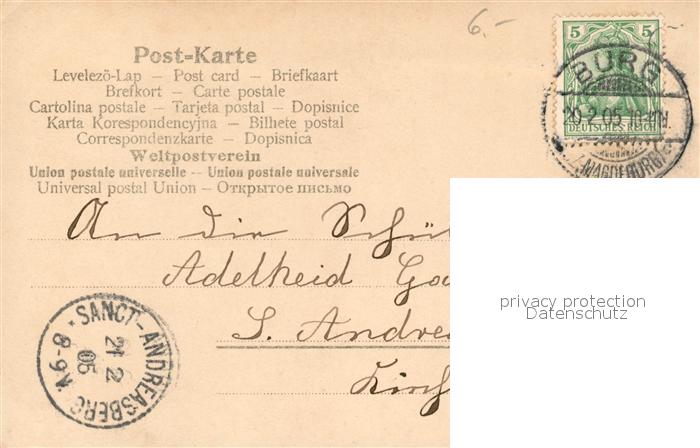 6.-
Post-Karte
Levelező-Lap – Post card – Briefkaart
Brefkort – Carte postale
Cartolina postale – Tarjeta postal – Dopisnice
Karta Korespondencyjna – Bilhete postal
Correspondenzkarte – Dopisnica
Weltpostverein
Union postale universelle – Union postale universale
Universal postal Union – Открытое письмо
5 5
DEUTSCHES REICH
BURG
20.2.05
MAGDEBURG
An die Schül
Adelheid
S. Andrea
Kirch
SANCT-ANDREASBERG
21 2
05
8-9 N.
privacy protection
Datenschutz